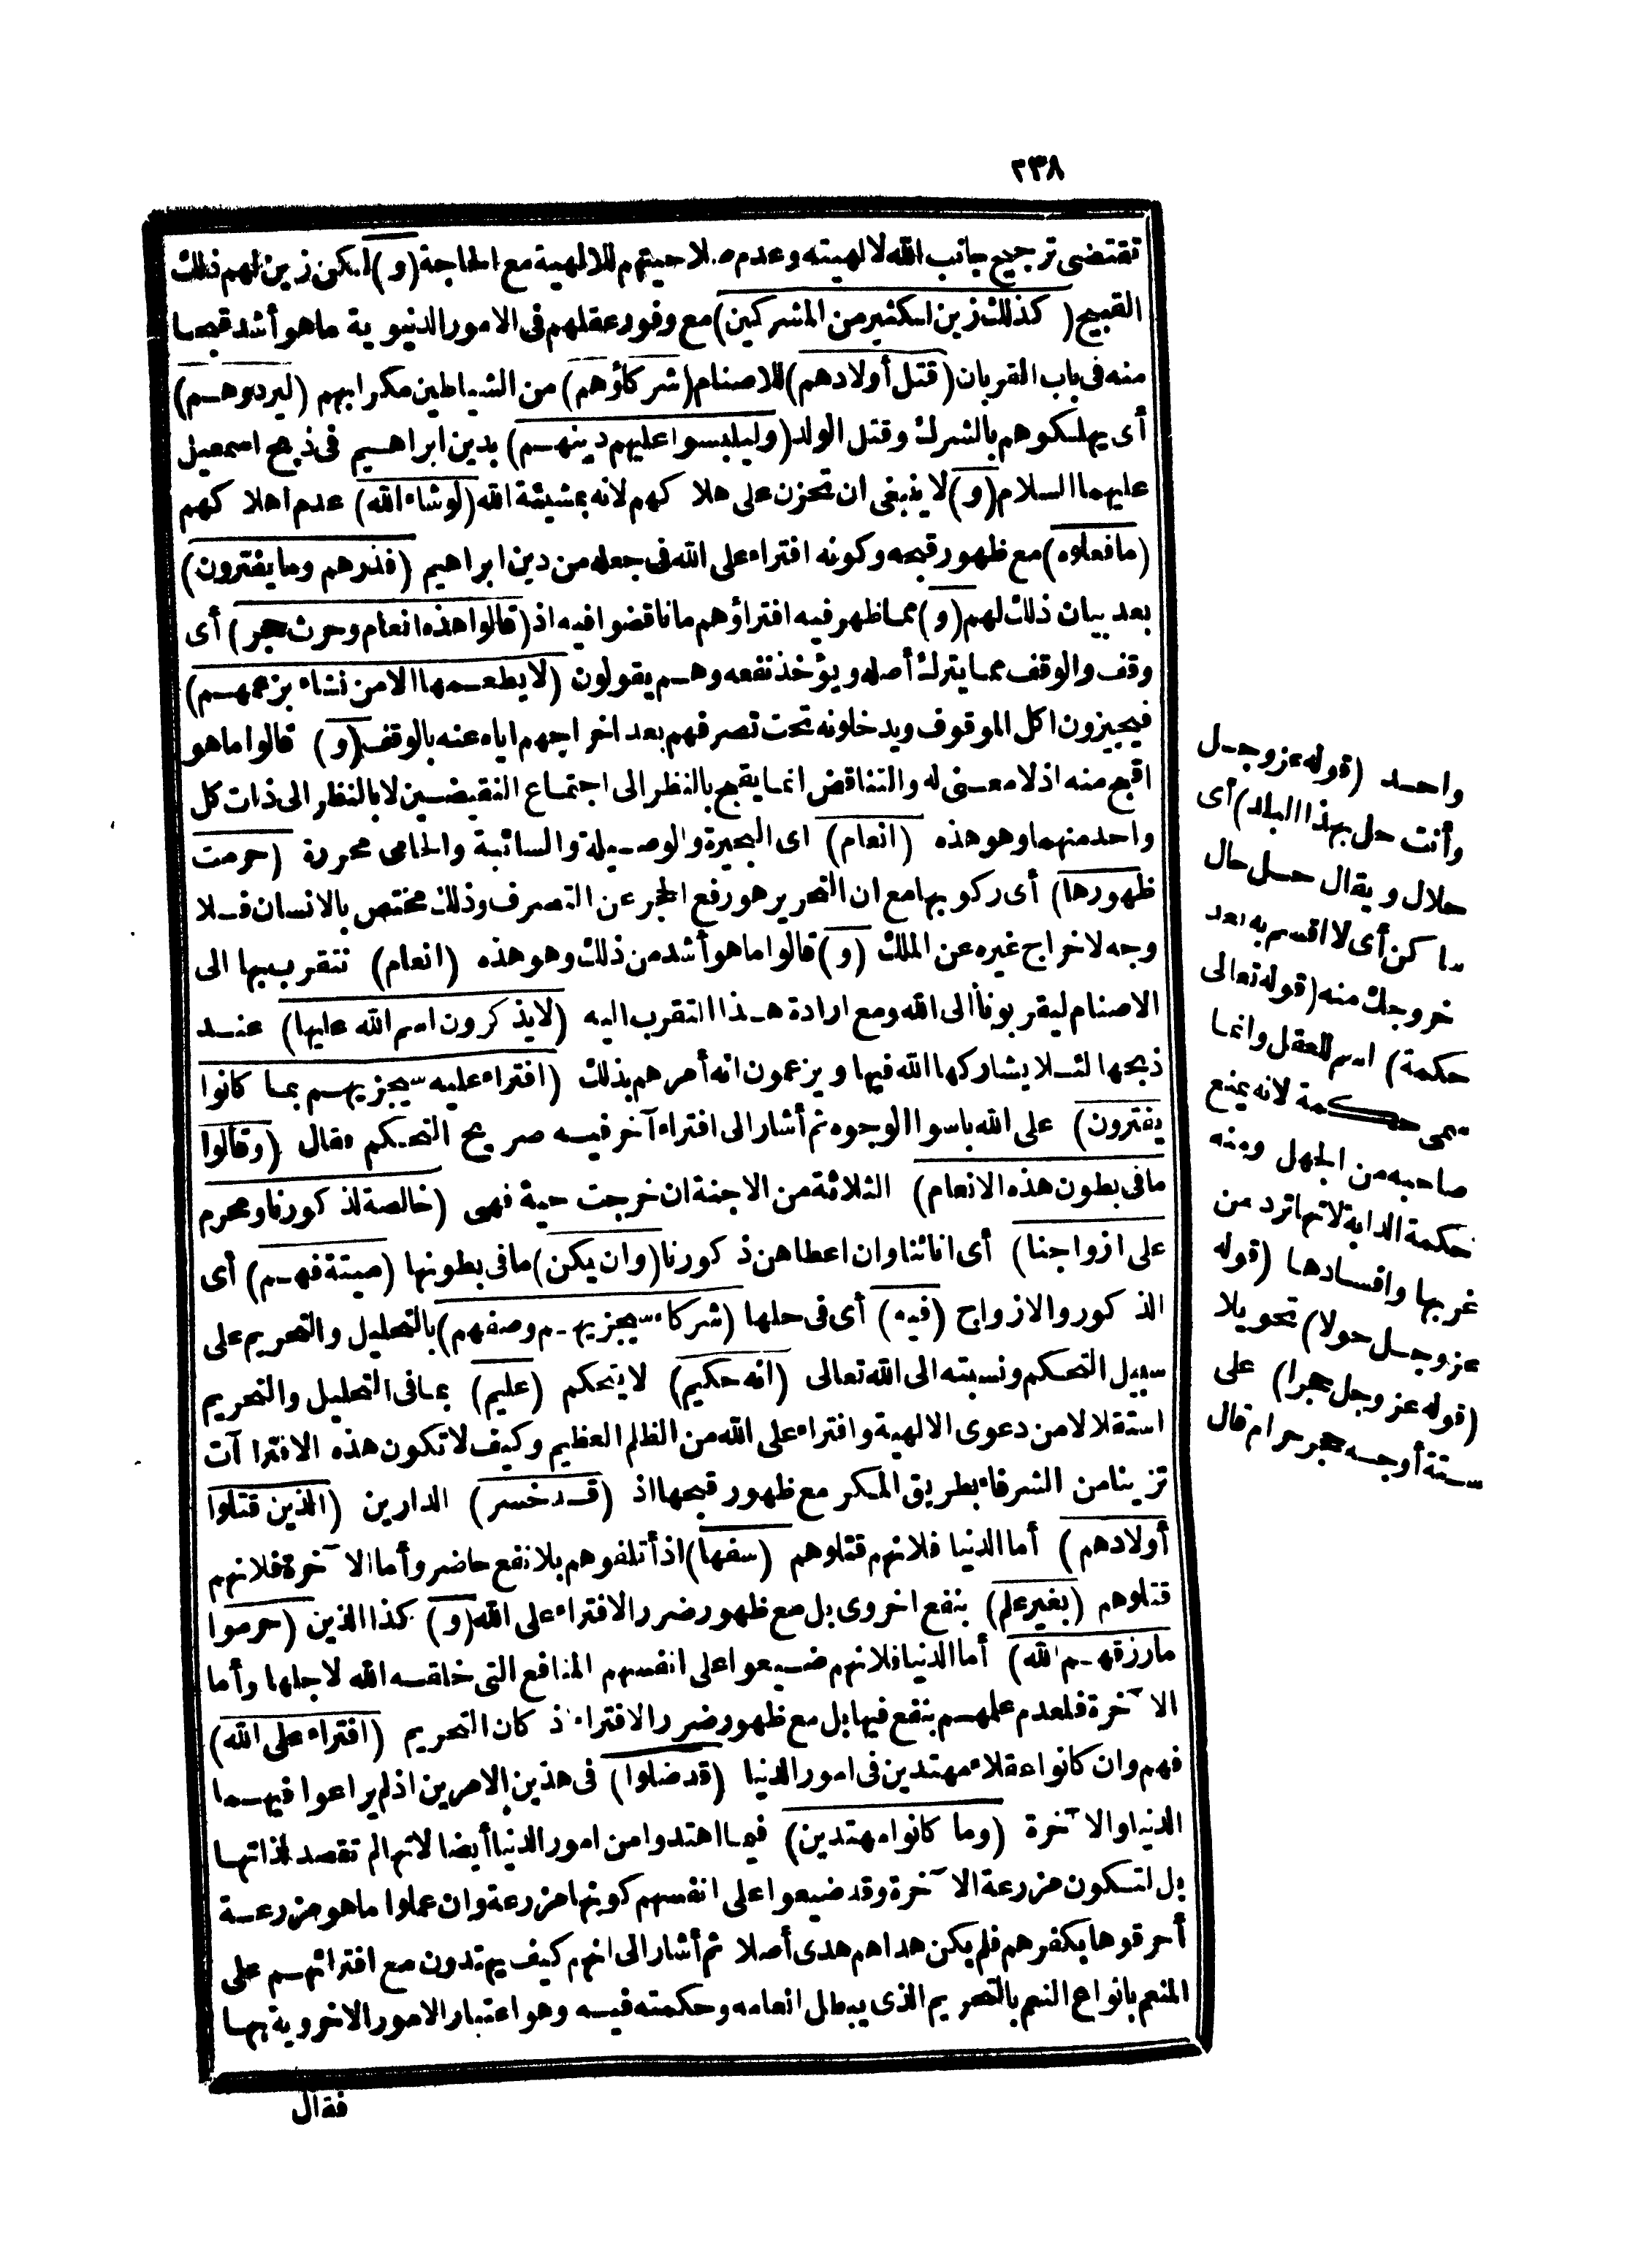 ٢٣٨
تقتضى ترجيح جانب الله لالهيته وعدم صلاحيتهم للالهية مع الحاجة (و) لكن زين لهم ذلك
القبيح (كذلك زين لكثير من المشركين) مع وفور عقلهم فى الامور الدنيوية ماهو أشد قبحا
منه فى باب القربان (قتل أولادهم) للاصنام (شركاؤهم) من الشياطين مكرا بهم (ليردوهم)
أى يهلكوهم بالشرك وقتل الولد (وليلبسوا عليهم دينهم) بدين ابراهيم فى ذبح اسمعيل
عليهما السلام (و) لا ينبغى ان تحزن على هلاكهم لانه بمشيئة الله (لوشاء الله) عدم اهلاكهم
(مافعلوه) مع ظهور قبحه وكونه افتراء على الله فى جعله من دين ابراهيم (فذرهم وما يفترون)
بعد بيان ذلك لهم (و) مما ظهر فيه افتراؤهم ما ناقضوا فيه اذ (قالوا هذه انعام وحرث حجر) أى
وقف والوقف مما يترك أصله ويؤخذ نفعه وهم يقولون (لا يطعمها الا من نشاء بزعمهم)
فيجيزون اكل الموقوف ويدخلونه تحت تصرفهم بعد اخراجهم اياه عنه بالوقف (و) قالوا ماهو
اقبح منه اذ لا معنى له والتناقض انما يقبح بالنظر الى اجتماع النقيضين لا بالنظر الى ذات كل
واحد منهما وهو هذه (انعام) اى البحيرة والوصيلة والسائبة والحامى محررة (حرمت
ظهورها) أى ركوبها مع ان التحرير هو رفع الحجر عن التصرف وذلك مختص بالانسان فلا
وجه لاخراج غيره عن الملك (و) قالوا ماهو أشد من ذلك وهو هذه (انعام) نتقرب بها الى
الاصنام ليقربونا الى الله ومع ارادة هذا التقرب اليه (لا يذكرون اسم الله عليها) عند
ذبحها لئلا يشاركها الله فيها ويزعمون انه أمرهم بذلك (افتراء عليه سيجزيهم بما كانوا
يفترون) على الله باسوا الوجوه ثم أشار الى افتراء آخر فيه صريح التحكم فقال (وقالوا
مافى بطون هذه الانعام) الثلاثة من الاجنة ان خرجت حية فهى (خالصة لذكورنا ومحرم
على ازواجنا) أى اناثنا وان اعطاهن ذكورنا (وان يكن) مافى بطونها (ميتة فهم) أى
الذكور والازواج (فيه) أى فى حلها (شركاء سيجزيهم وصفهم) بالتحليل والتحريم على
سبيل التحكم ونسبته الى الله تعالى (انه حكيم) لا يتحكم (عليم) بما فى التحليل والتحريم
استقلالا من دعوى الالهية وافتراء على الله من الظلم العظيم وكيف لا تكون هذه الافتراآت
تزيينا من الشرفاء بطريق المكر مع ظهور قبحها اذ (قد خسر) الدارين (الذين قتلوا
أولادهم) أما الدنيا فلانهم قتلوهم (سفها) اذ أتلفوهم بلا نفع حاضر وأما الآخرة فلانهم
قتلوهم (بغير علم) بنفع اخروى بل مع ظهور ضرر الافتراء على الله (و) كذا الذين (حرموا
مارزقهم الله) أما الدنيا فلانهم ضيعوا على انفسهم المنافع التى خلقه الله لاجلها وأما
الآخرة فلعدم علمهم بنفع فيها بل مع ظهور ضرر الافتراء اذ كان التحريم (افتراء على الله)
فهم وان كانوا عقلاء مهتدين فى امور الدنيا (قد ضلوا) فى هذين الامرين اذ لم يراعوا فيهما
الدنيا والآخرة (وما كانوا مهتدين) فيما اهتدوا من امور الدنيا أيضا لانها لم تقصد لذاتها
بل لتكون مزرعة الآخرة وقد ضيعوا على انفسهم كونها مزرعة وان عملوا ماهو مزرعة
أحرقوها بكفرهم فلم يكن هداهم هدى أصلا ثم أشار الى انهم كيف يهتدون مع افترائهم على
المنعم بانواع النعم بالتحريم الذى يبطل انعامه وحكمته فيه وهو اعتبار الامور الاخروية بها
فقال
واحد (قوله عز وجل
وأنت حل بهذا البلد) أى
حلال ويقال حل حال
ساكن أى لا اقسم به بعد
خروجك منه (قوله تعالى
حكمة) اسم للعقل وانما
سمى حكمة لانه يمنع
صاحبه من الجهل ومنه
حكمة الدابة لانها ترد من
غربها وافسادها (قوله
عز وجل حولا) تحويلا
(قوله عز وجل حجرا) على
ستة أوجه حجر حرام قال